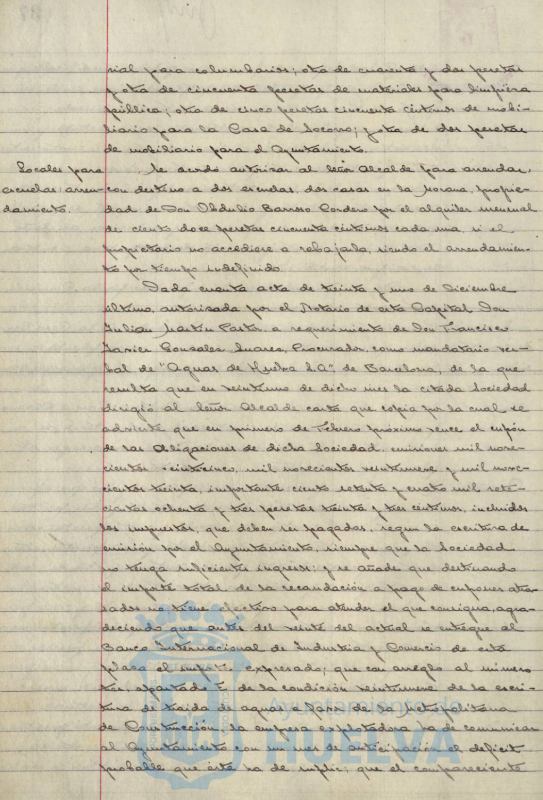 rial para columbarios; otra de cuarenta y dos pesetas
y otra de cincuenta pesetas de materiales para limpieza
pública; otra de cinco pesetas cincuenta céntimos de mobi-
liario para la Casa de Socorro; y otra de dos pesetas
de mobiliario para el Ayuntamiento.
Locales para
escuelas: arren-
damiento.
Se acordó autorizar al Señor Alcalde para arrendar,
con destino a dos escuelas, dos casas en la Morana, propie-
dad de Don Obdulio Barroso Cordero por el alquiler mensual
de ciento doce pesetas cincuenta céntimos cada una, si el
propietario no accediere a rebajarla, siendo el arrendamien-
to por tiempo indefinido.
Dada cuenta acta de treinta y uno de Diciembre
último, autorizada por el Notario de esta Capital Don
Julian Martin Pastor, a requerimiento de Don Francisco
Javier Gonzalez Suarez, Procurador, como mandatario ver-
bal de "Aguas de Huelva S.A", de Barcelona, de la que
resulta que en veintiuno de dicho mes la citada Sociedad
dirigió al Señor Alcalde carta que copia por la cual se
advierte que en primero de Febrero próximo vence el cupón
de las Obligaciones de dicha Sociedad, emisiones mil nove-
cientos veinticinco, mil novecientos veintinueve y mil nove-
cientos treinta, importante ciento setenta y cuatro mil sete-
cientas ochenta y tres pesetas treinta y tres céntimos, incluidos
los impuestos, que deben ser pagadas, según la escritura de
emisión por el Ayuntamiento, siempre que la Sociedad
no tenga suficientes ingresos; y se añade que destinando
el importe total de la recaudación a pago de cupones atra-
sados no tiene efectivo para atender el que consigna, agra-
deciendo que antes del veinte del actual se entregue al
Banco Internacional de Industria y Comercio de esta
plaza el importe expresado; que con arreglo al número
tres, apartado de la condición veintinueve de la escri-
tura de traida de aguas a favor de la Metropolitana
de Construcción, la empresa explotadora ha de comunicar
al Ayuntamiento con un mes de anticipación el déficit
probable que ésta ha de suplir; que el compareciente
Ayuntamiento de
HUELVA